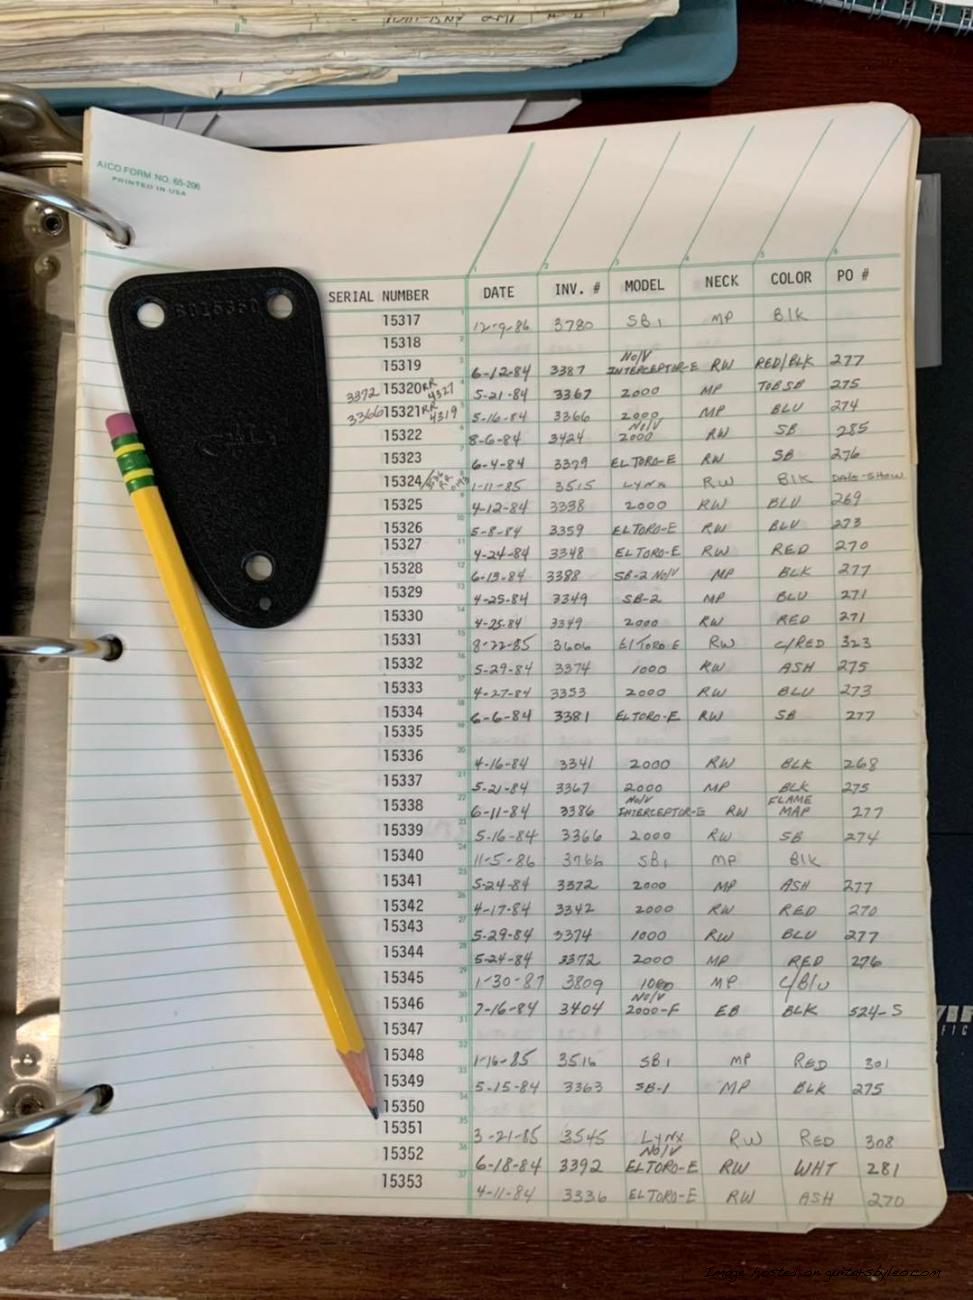 AICO FORM NO. 65-206
PRINTED IN USA
SERIAL NUMBER DATE INV. # MODEL NECK COLOR PO #
15317 12-9-86 3780 SB1 MP Blk
15318
No/V
15319 6-12-84 3387 INTERCEPTOR-E RW RED/BLK 277
3372 15320 RR 4327 5-21-84 3367 2000 MP TOBSB 275
3366 15321 RR 4319 5-16-84 3366 2000 MP BLU 274
No/V
15322 8-6-84 3424 2000 RW SB 285
15323 6-4-84 3379 EL TORO-E RW SB 276
15324 1-11-85 3515 LYNX RW Blk
15325 4-12-84 3338 2000 RW BLU 269
15326 5-8-84 3359 EL TORO-E RW BLU 273
15327 4-24-84 3348 EL TORO-E RW RED 270
15328 6-13-84 3388 SB-2 No/V MP BLK 277
15329 4-25-84 3349 SB-2 MP BLU 271
15330 4-25-84 3349 2000 RW RED 271
15331 8-22-85 3606 El Toro E RW C/RED 323
15332 5-29-84 3374 1000 RW ASH 275
15333 4-27-84 3353 2000 RW BLU 273
15334 6-6-84 3381 EL TORO-E RW SB 277
15335
15336 4-16-84 3341 2000 RW BLK 268
15337 5-21-84 3367 2000 MP BLK 275
No/V FLAME
15338 6-11-84 3386 INTERCEPTOR-E RW MAP 277
15339 5-16-84 3366 2000 RW SB 274
15340 11-5-86 3766 SB1 MP Blk
15341 5-24-84 3372 2000 MP ASH 277
15342 4-17-84 3342 2000 RW RED 270
15343 5-29-84 3374 1000 RW BLU 277
15344 5-24-84 3372 2000 MP RED 276
15345 1-30-87 3809 1000 MP C/Blu
No/V
15346 7-16-84 3404 2000-F EB BLK 524-S
15347
15348 1-16-85 3516 SB1 MP RED 301
15349 5-15-84 3363 SB-1 MP BLK 275
15350
15351 3-21-85 3545 Lynx RW RED 308
No/V
15352 6-18-84 3392 EL TORO-E RW WHT 281
15353 4-11-84 3336 EL TORO-E RW ASH 270
Image hosted on guitarsbyleo.com